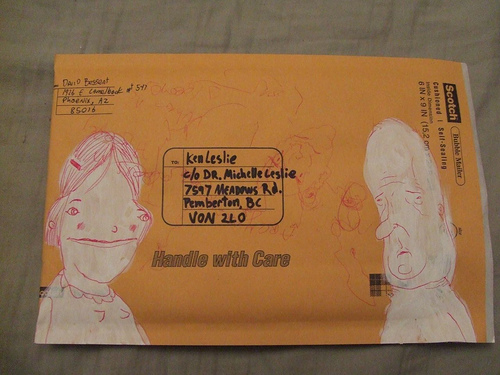 David Bessent
1916 E Camelback # 547
Phoenix, AZ
85016
TO:
Ken Leslie
c/o DR. Michelle Leslie
7597 MEADOWS Rd.
Pemberton, BC
VON 2LO
Handle with Care
Scotch
Bubble Mailer
Cushioned | Self-Sealing
Inside Dimension
6 IN x 9 IN (15.2 cm